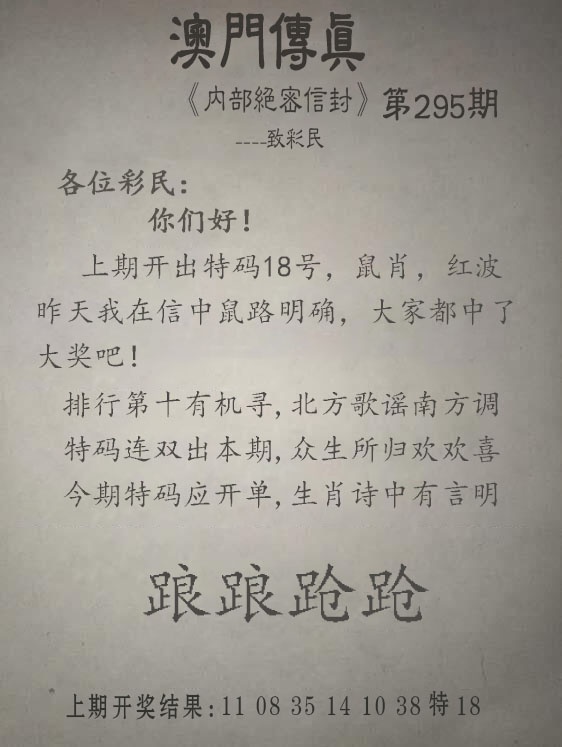 澳門傳眞
《内部絕密信封》第295期
----致彩民
各位彩民:
你们好!
上期开出特码18号，鼠肖，红波
昨天我在信中鼠路明确，大家都中了
大奖吧!
排行第十有机寻,北方歌谣南方调
特码连双出本期,众生所归欢欢喜
今期特码应开单,生肖诗中有言明
踉踉跄跄
上期开奖结果:11 08 35 14 10 38 特 18